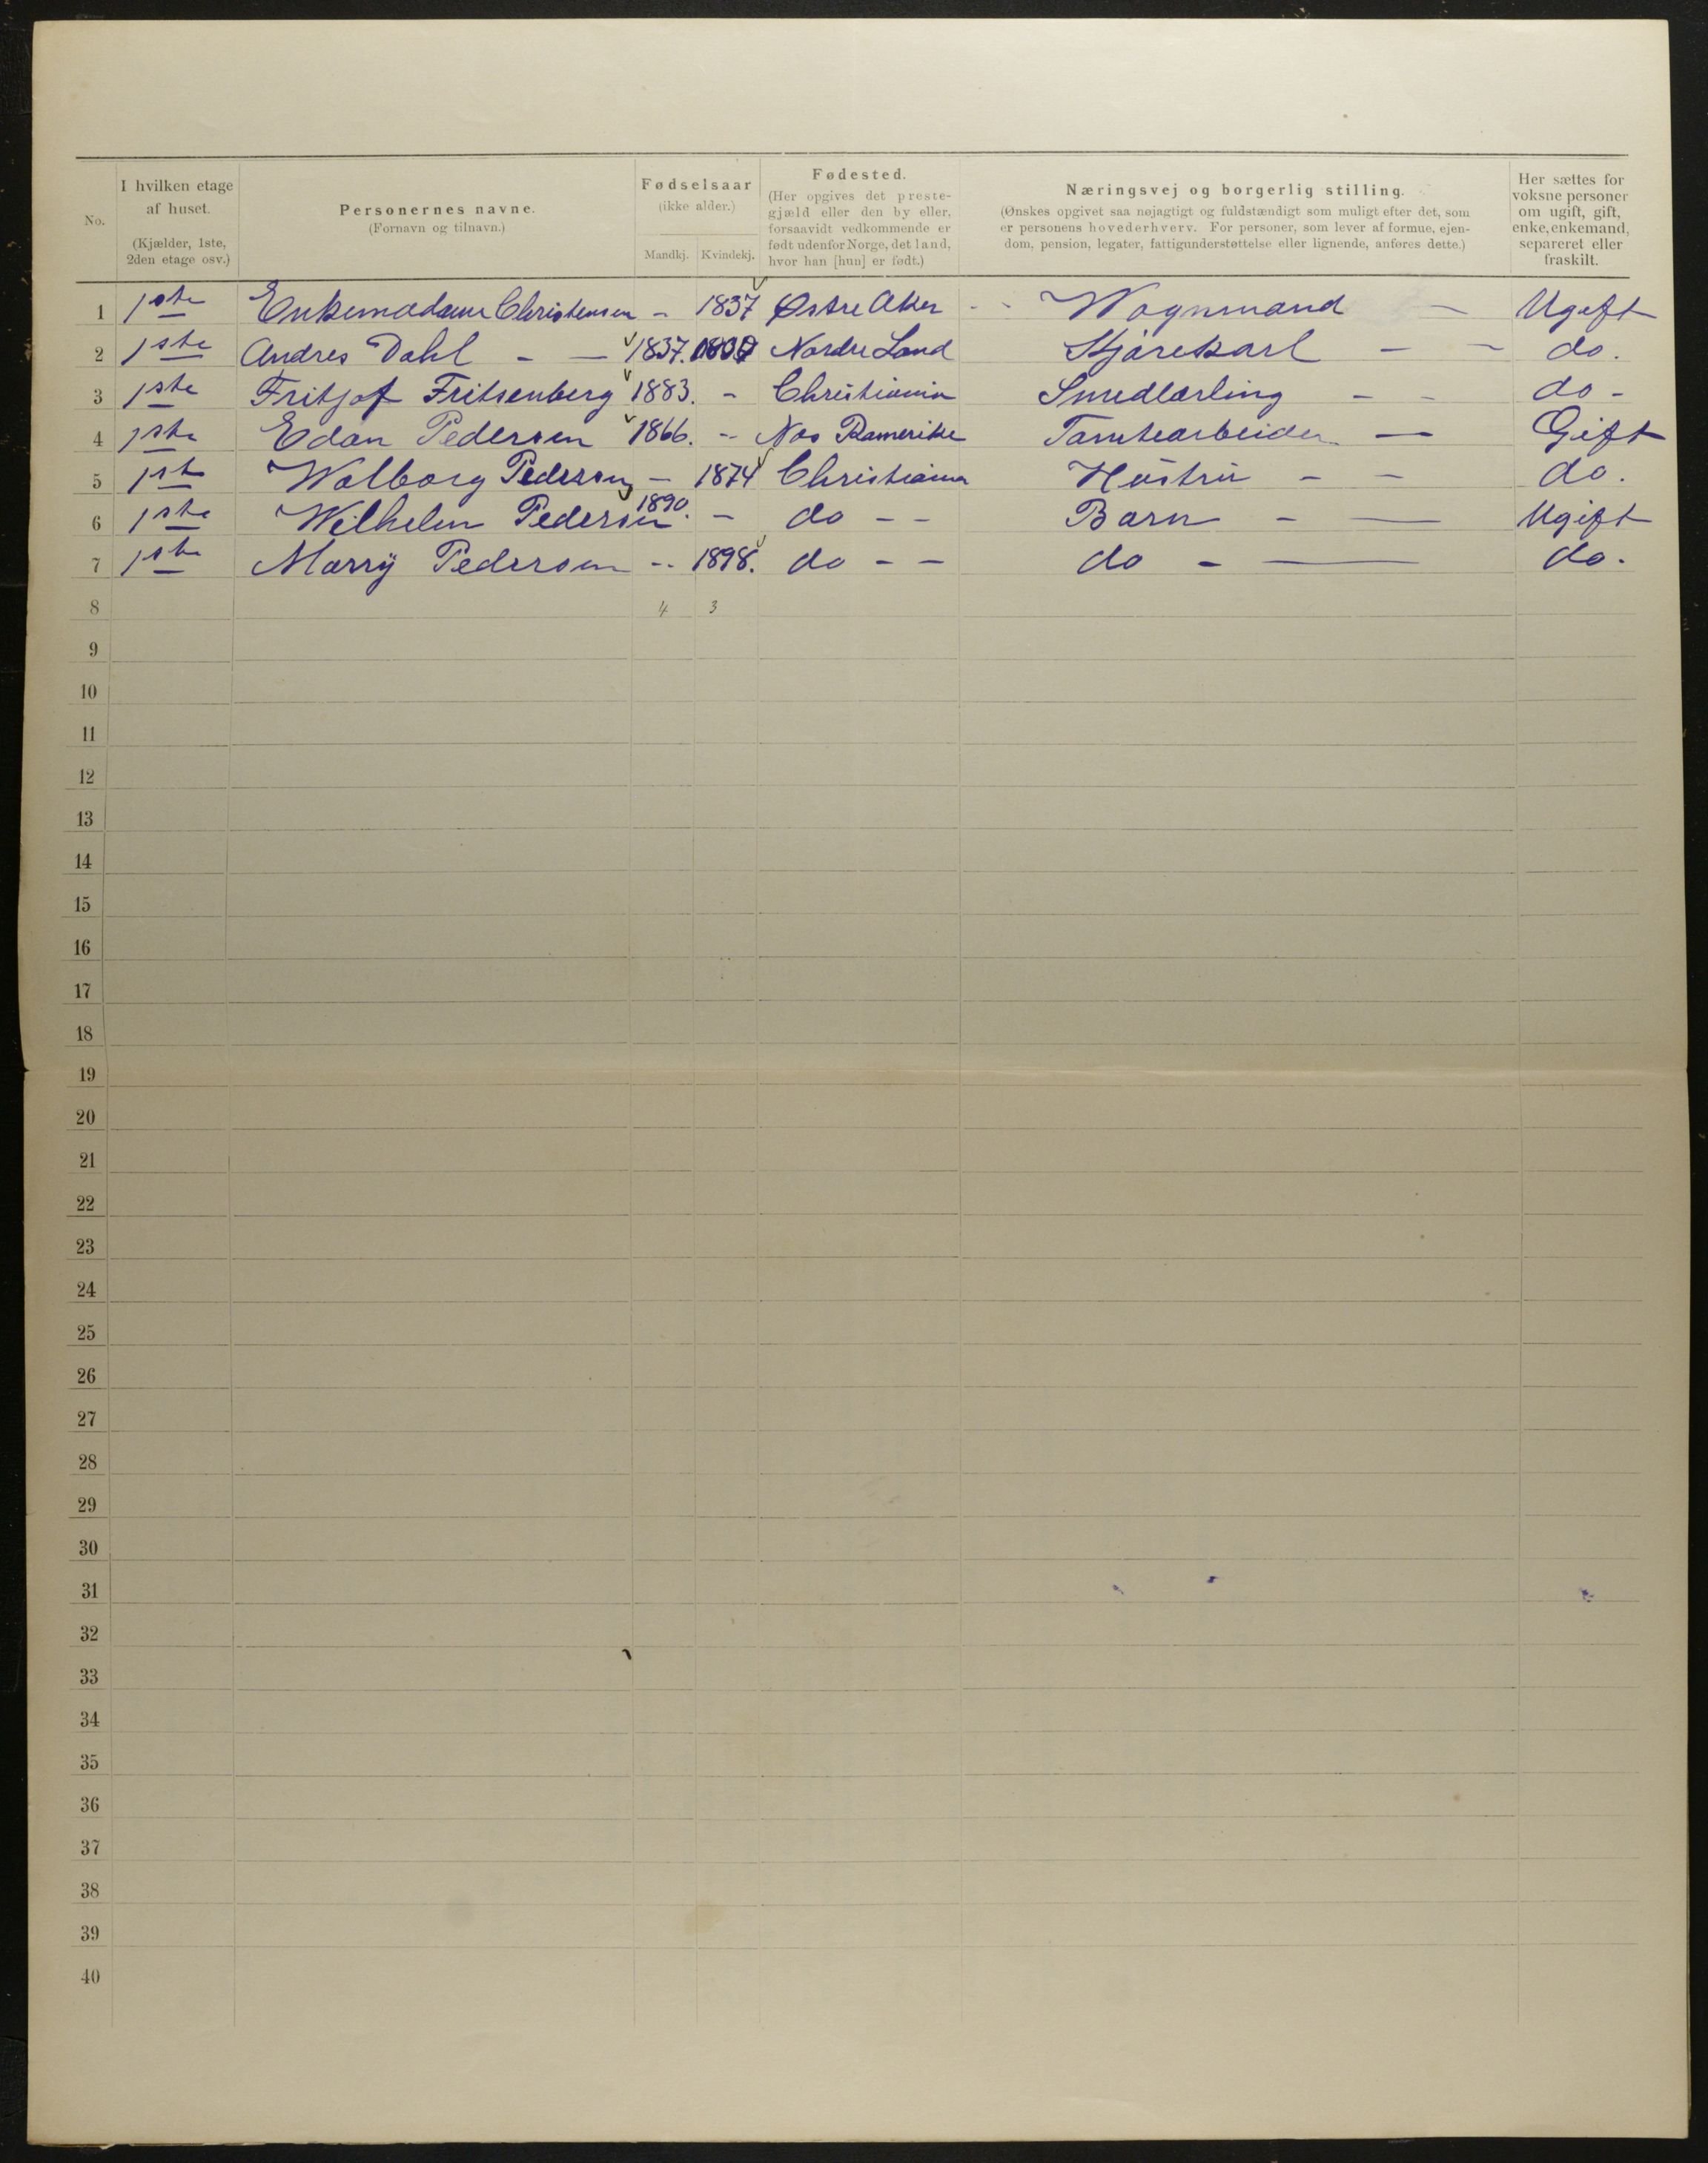 No.
I hvilken etage af huset. (Kjælder, 1ste, 2den etage osv.)
Personernes navne. (Fornavn og tilnavn.)
Fødselsaar (ikke alder.)
Mandkj. Kvindekj.
Fødested. (Her opgives det prestegjæld eller den by eller, forsaavidt vedkommende er født udenfor Norge, det land, hvor han [hun] er født.)
Næringsvej og borgerlig stilling.
(Ønskes opgivet saa nøjagtigt og fuldstændigt som muligt efter det, som er personens hovederhverv. For personer, som lever af formue, ejendom, pension, legater, fattigunderstøttelse eller lignende, anføres dette.)
Her sættes for voksne personer om ugift, gift, enke, enkemand, separeret eller fraskilt.
1 1ste Enkemadame Christensen - 1837 Østre Aker - Wognmand - Ugift
2 1ste Andres Dahl - - 1837. Nordre Land Kjørekarl - - do.
3 1ste Fritjof Fritsenberg 1883. - Christiania Smedlærling - - do -
4 1ste Edan Pedersen 1866. - Nos Romerike Tomtearbeider - Gift
5 1ste Wolborg Pedersen - 1874 Christiania Hustru - - do.
6 1ste Wilhelm Pedersen 1890. - do - - Barn - - Ugift
7 1ste Marry Pedersen - 1898. do - - do - - do.
8 4 3
9
10
11
12
13
14
15
16
17
18
19
20
21
22
23
24
25
26
27
28
29
30
31
32
33
34
35
36
37
38
39
40